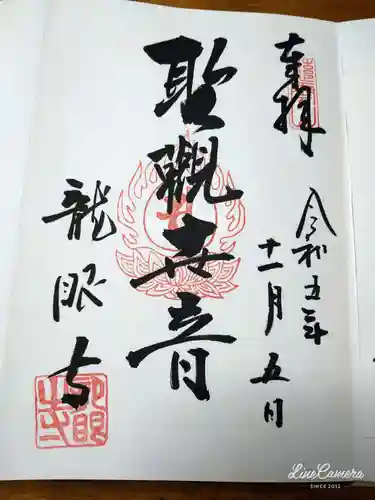 奉拝
令和五年
十一月五日
聖観世音
龍眼寺
LineCamera
SINCE 2012